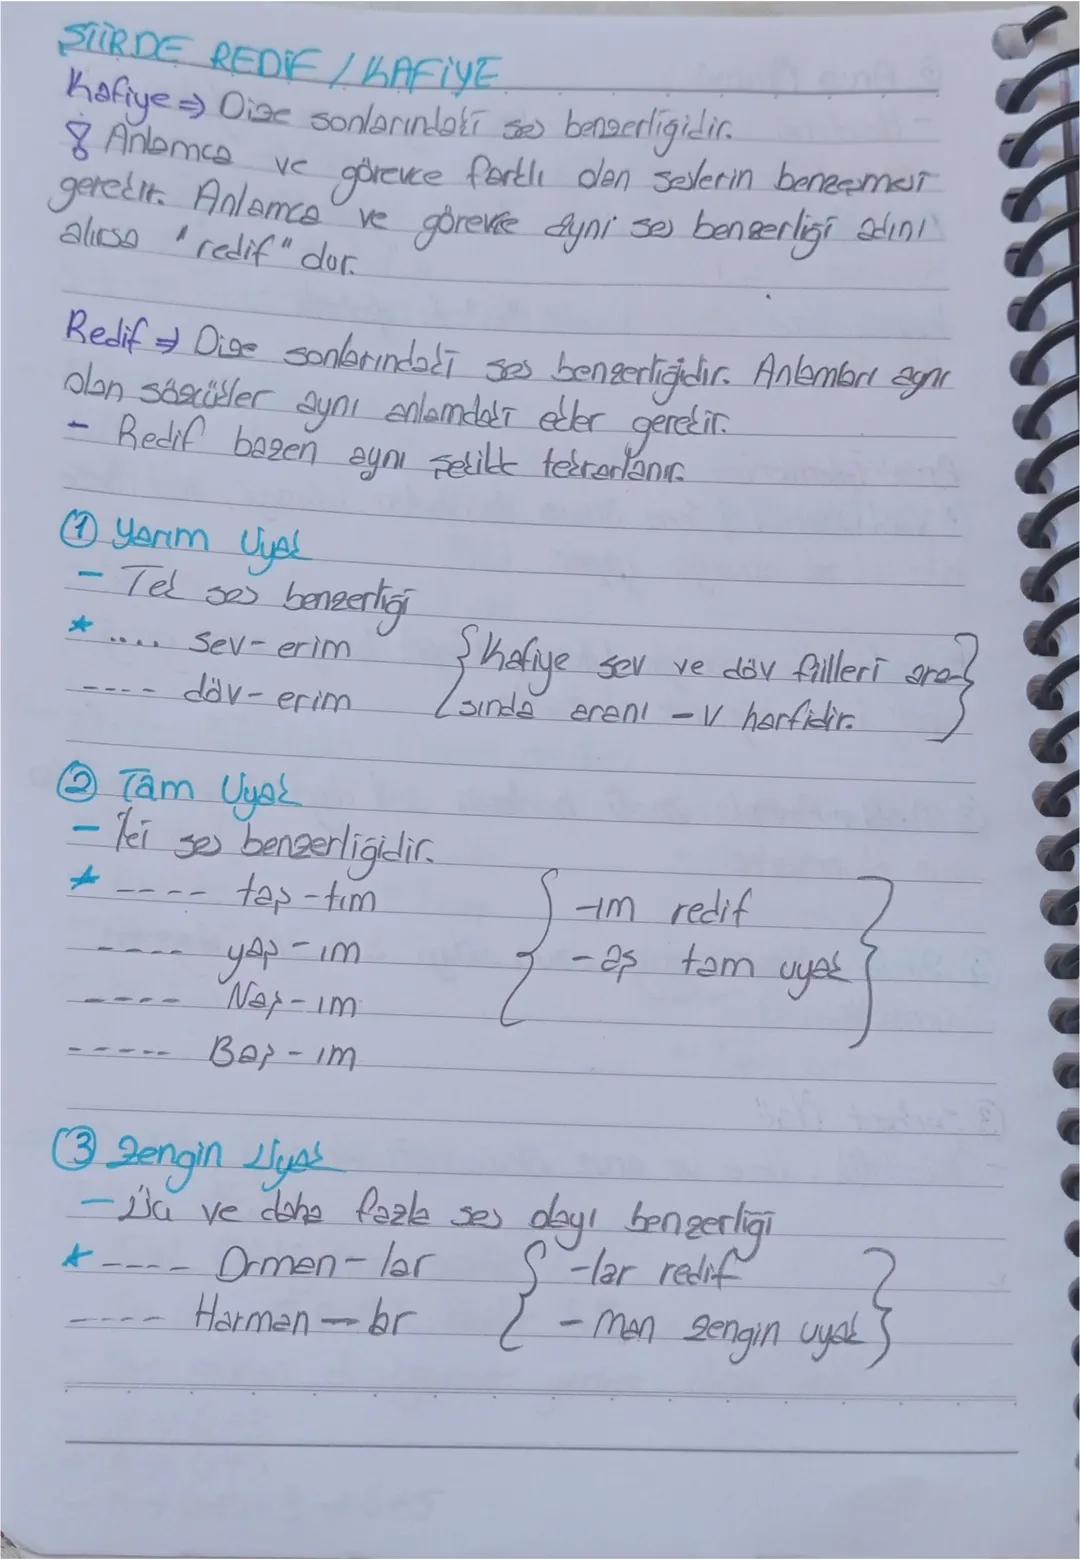 ŞİİRDE REDİF / KAFİYE
Kafiye ⇒ Dize sonlarındaki ses benzerliğidir.
Anlamca ve görevce farklı olan seslerin benzemesi
gerekir. Anlamca ve görevce aynı ses benzerliği adını
alırsa "redif" dur.
Redif ⇒ Dize sonlarındaki ses benzerliğidir. Anlamları aynı
olan sözcükler aynı anlamdaki ekler gerekir.
- Redif bazen aynı şekilde tekrarlanır.
① Yarım Uyak
- Tek ses benzerliği
* .... sev-erim { Kafiye sev ve döv fiilleri ara- }
---- döv-erim { sında -v harfidir. }
② Tam Uyak
- İki ses benzerliğidir.
* ---- taş-tım { -ım redif }
---- yaş-ım { -aş tam uyak }
---- Naş-ım
----- Baş-ım
③ Zengin Uyak
- Üç ve daha fazla ses olayı benzerliği
* ---- Orman-lar { -lar redif }
---- Harman-lar { -man zengin uyak }